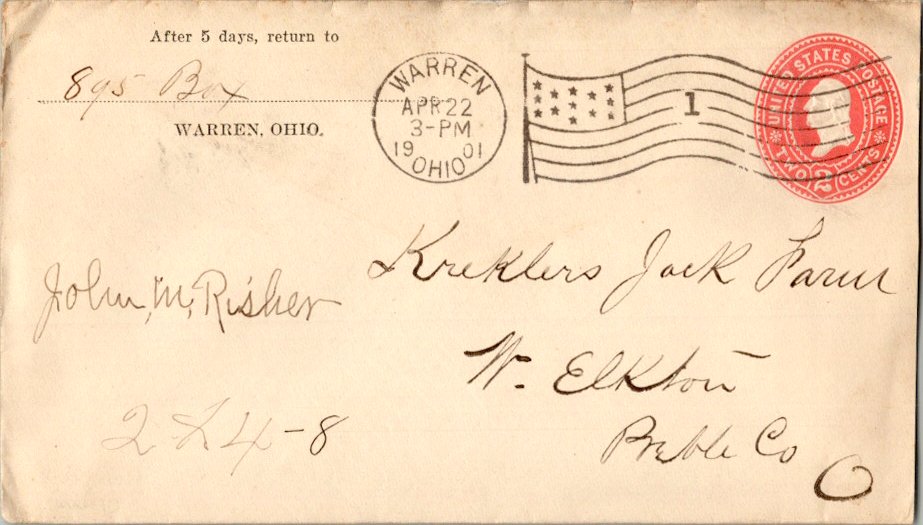 After 5 days, return to
895 Box
WARREN, OHIO.
WARREN
APR 22
3-PM
19 01
OHIO
1
UNITED STATES POSTAGE
TWO 2 CENTS
Kreklers Jack Farm
W. Elkton
Preble Co
O
John, M, Risher
2 24-8